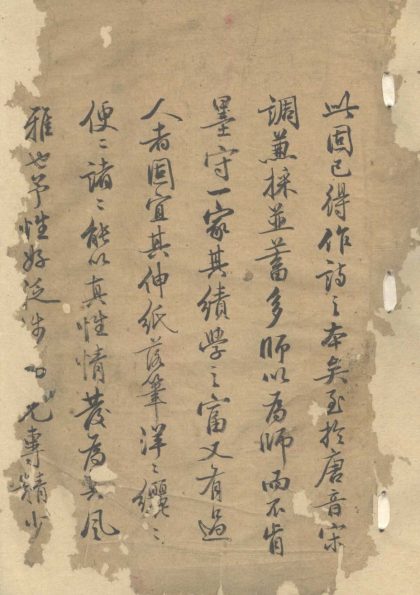 此固已得作詩之本矣至於唐音宋
調兼採並蓄多師以為師而不肯
墨守一家其績學之富又有過
人者固宜其伸紙落筆洋〻纚〻
便〻諸〻能以真性情發為其風
雅也予性好泛涉 尤專精少